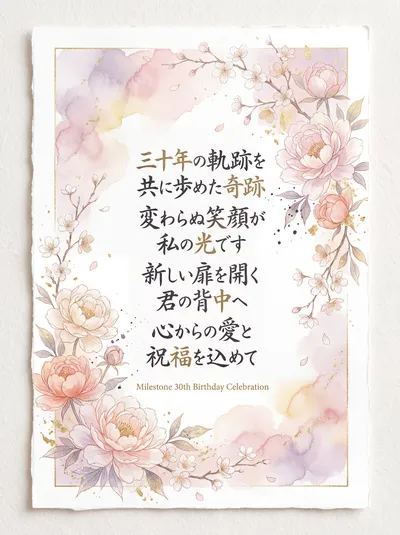 三十年の軌跡を
共に歩めた奇跡
変わらぬ笑顔が
私の光です
新しい扉を開く
君の背中へ
心からの愛と
祝福を込めて
Milestone 30th Birthday Celebration